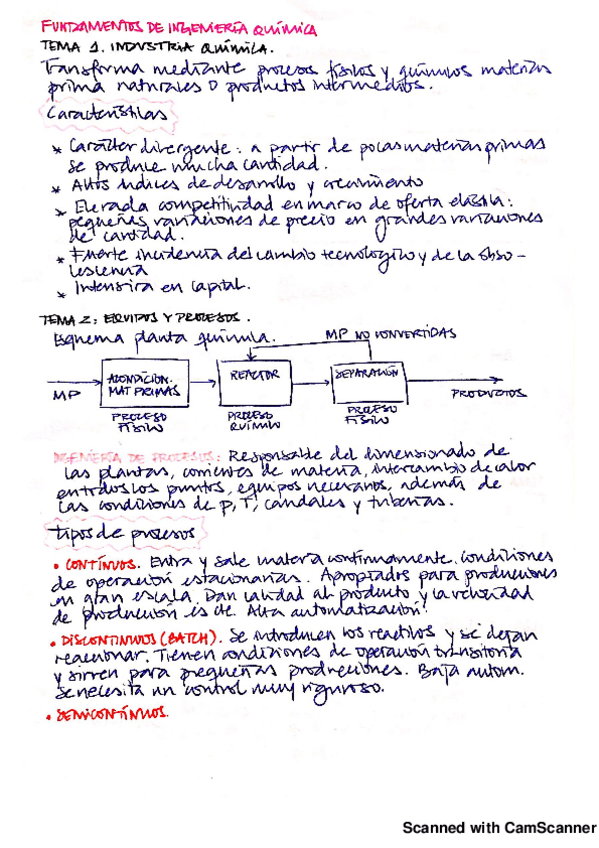 FUNDAMENTOS DE INGENIERÍA QUÍMICA
TEMA 1. INDUSTRIA QUÍMICA.
Transforma mediante procesos físicos y químicos materias
prima naturales o productos intermedios.
Características
* Carácter divergente: a partir de pocas materias primas
se produce mucha cantidad.
* Altos índices de desarrollo y crecimiento
* Elevada competitividad en marco de oferta elástica:
pequeñas variaciones de precio en grandes variaciones
de cantidad.
* Fuerte incidencia del cambio tecnológico y de la obso-
lescencia
* Intensiva en capital.
TEMA 2: EQUIPOS Y PROCESOS.
Esquema planta química.
MP NO CONVERTIDAS
MP
ACONDICION.
MAT PRIMAS
REACTOR
SEPARACIÓN
PRODUCTOS
PROCESO
FÍSICO
PROCESO
QUÍMICO
PROCESO
FÍSICO
INGENIERÍA DE PROCESOS: Responsable del dimensionado de
las plantas, corrientes de materia, intercambio de calor
en todos los puntos, equipos necesarios, además de
las condiciones de p, T, caudales y tuberías.
Tipos de procesos
• CONTÍNUOS. Entra y sale materia continuamente. Condiciones
de operación estacionarias. Apropiados para producciones
en gran escala. Dan calidad al producto y la velocidad
de producción es cte. Alta automatización.
• DISCONTINUOS (BATCH). Se introducen los reactivos y se dejan
reaccionar. Tienen condiciones de operación transitoria
y sirven para pequeñas producciones. Baja autom.
Se necesita un control muy riguroso.
• SEMICONTÍNUOS.
Scanned with CamScanner